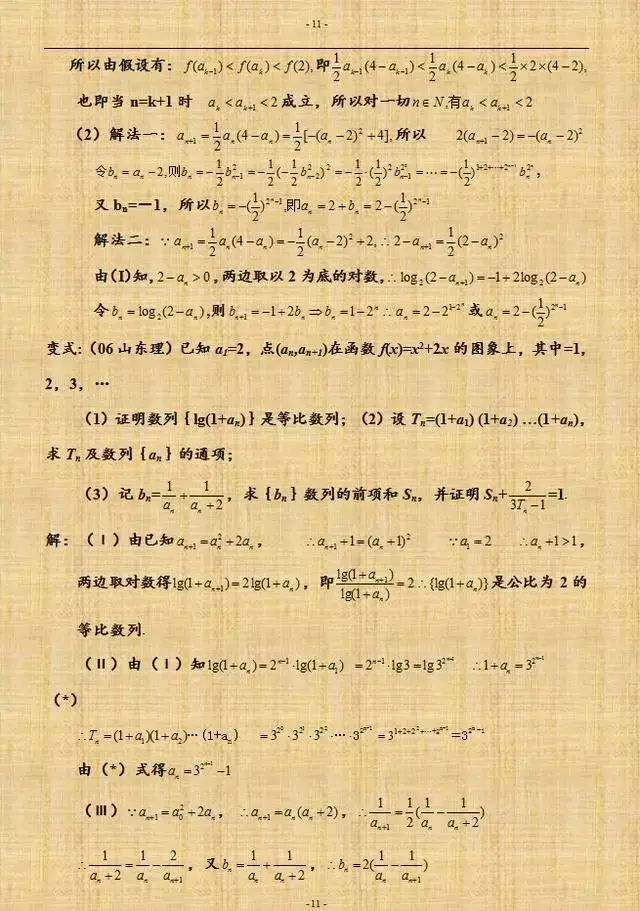 - 11 -
所以由假设有：f(a_{k-1})<f(a_k)<f(2),即\frac{1}{2}a_{k-1}(4-a_{k-1})<\frac{1}{2}a_k(4-a_k)<\frac{1}{2}×2×(4-2),
也即当 n=k+1 时 a_k<a_{k+1}<2成立，所以对一切n∈N,有a_k<a_{k+1}<2
（2）解法一：a_{n+1}=\frac{1}{2}a_n(4-a_n)=\frac{1}{2}[-(a_n-2)^2+4],所以 2(a_{n+1}-2)=-(a_n-2)^2
令b_n=a_n-2,则b_n=-\frac{1}{2}b_{n-1}^2=-\frac{1}{2}(-\frac{1}{2}b_{n-2}^2)^2=-\frac{1}{2}·(\frac{1}{2})^2b_{n-1}^{2^2}=⋯=-(\frac{1}{2})^{1+2+⋯+2^{n-1}}b_n^{2^n}，
又 b_n=－1，所以b_n=-(\frac{1}{2})^{2^n-1},即a_n=2+b_n=2-(\frac{1}{2})^{2^n-1}
解法二：∵a_{n+1}=\frac{1}{2}a_n(4-a_n)=-\frac{1}{2}(a_n-2)^2+2,∴2-a_{n+1}=\frac{1}{2}(2-a_n)^2
由(I)知，2-a_n>0，两边取以 2 为底的对数，∴log_2(2-a_{n+1})=-1+2log_2(2-a_n)
令b_n=log_2(2-a_n),则b_{n+1}=-1+2b_n⇒b_n=1-2^n∴a_n=2-2^{1-2^n}或a_n=2-(\frac{1}{2})^{2^n-1}
变式：（06 山东理）已知 a_1=2，点(a_n,a_{n+1})在函数 f(x)=x^2+2x 的图象上，其中=1，
2，3，⋯
（1）证明数列｛lg(1+a_n)｝是等比数列；（2）设 T_n=(1+a_1) (1+a_2) …(1+a_n)，
求 T_n 及数列｛a_n｝的通项；
（3）记 b_n=\frac{1}{a_n}+\frac{1}{a_n+2}，求｛b_n｝数列的前项和 S_n，并证明 S_n+\frac{2}{3T_n-1}=1.
解：（Ⅰ）由已知a_{n+1}=a_n^2+2a_n， ∴a_{n+1}+1=(a_n+1)^2 ∵a_1=2 ∴a_n+1>1，
两边取对数得lg(1+a_{n+1})=2lg(1+a_n)，即\frac{lg(1+a_{n+1})}{lg(1+a_n)}=2∴{lg(1+a_n)}是公比为 2 的
等比数列.
（Ⅱ）由（Ⅰ）知lg(1+a_n)=2^{n-1}·lg(1+a_1) =2^{n-1}·lg3=lg3^{2^{n-1}} ∴1+a_n=3^{2^{n-1}}
（*）
∴T_n=(1+a_1)(1+a_2)⋯(1+a_n) =3^{2^0}·3^{2^1}·3^{2^2}·⋯·3^{2^{n-1}}=3^{1+2+2^2+⋯+2^{n-1}}=3^{2^n-1}
由（*）式得a_n=3^{2^{n-1}}-1
（Ⅲ）∵a_{n+1}=a_0^2+2a_n，∴a_{n+1}=a_n(a_n+2)，∴\frac{1}{a_{n+1}}=\frac{1}{2}(\frac{1}{a_n}-\frac{1}{a_n+2})
∴\frac{1}{a_n+2}=\frac{1}{a_n}-\frac{2}{a_{n+1}}，又b_n=\frac{1}{a_n}+\frac{1}{a_n+2}，∴b_n=2(\frac{1}{a_n}-\frac{1}{a_{n+1}})
- 11 -